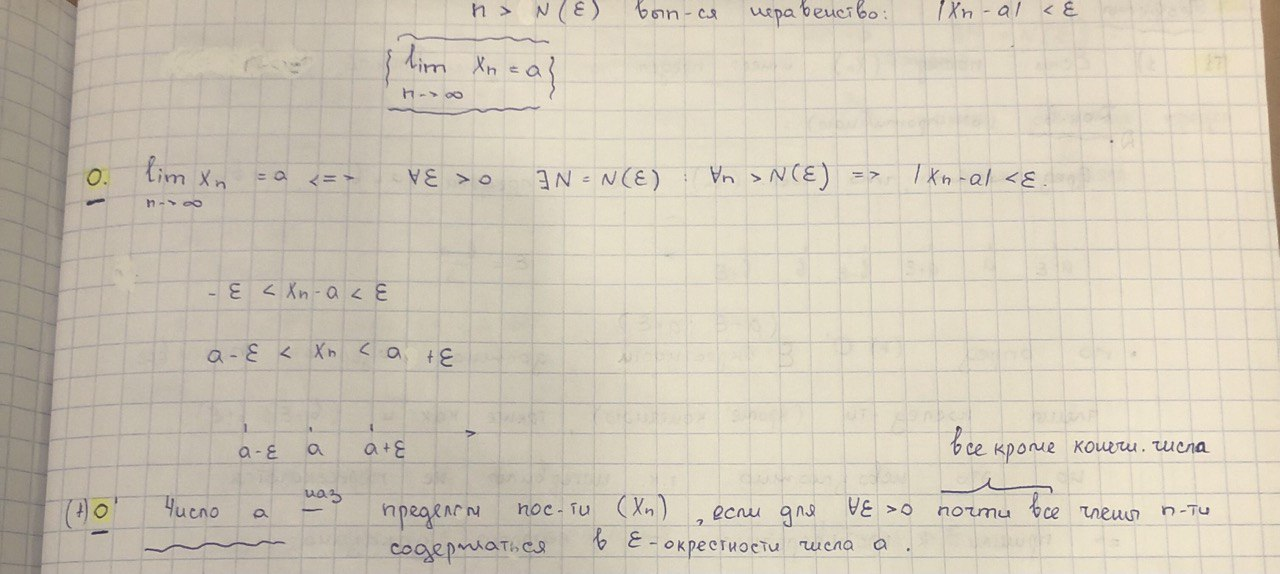 n > N(ε) вып-ся неравенство: |xn - a| < ε
{ lim xn = a }
n -> ∞
О. lim xn = a <=> ∀ε > 0 ∃N = N(ε) : ∀n > N(ε) => |xn - a| < ε.
n -> ∞
- ε < xn - a < ε
a - ε < xn < a + ε
a-ε a a+ε >
все кроме конечн. числа
(+) О' Число a наз пределом пос-ти (xn) , если для ∀ε > 0 почти все члены п-ти
содержаться в ε-окрестности числа a .